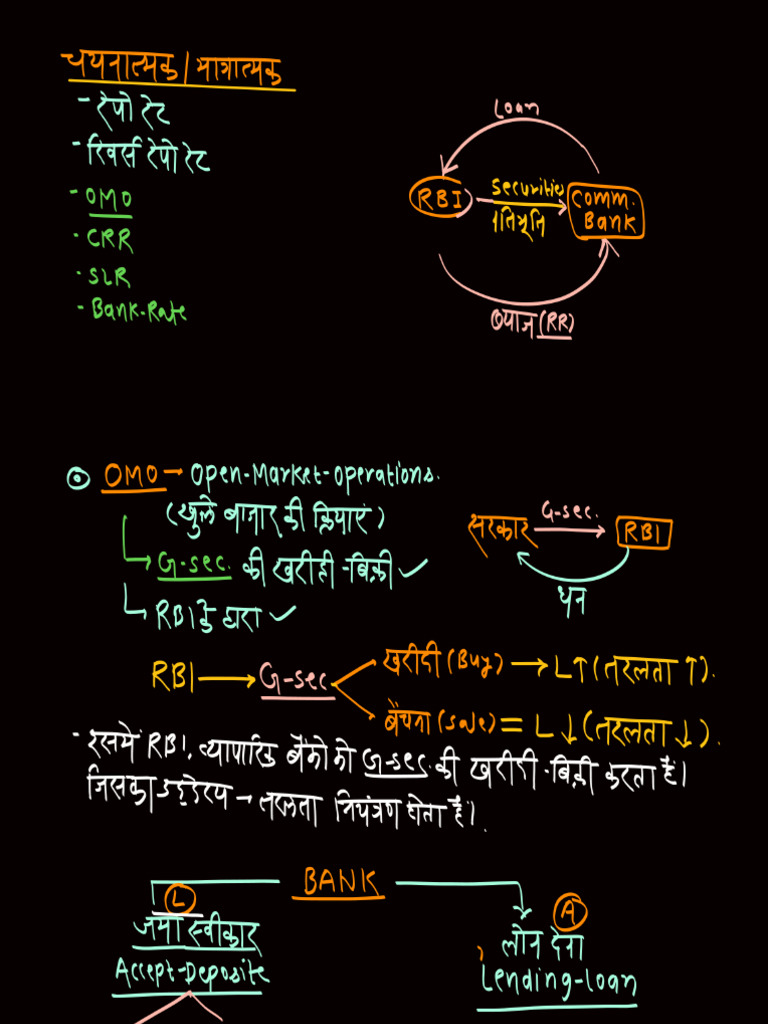 चयनात्मक / मात्रात्मक
- रेपो रेट
- रिवर्स रेपो रेट
- OMO
· CRR
· SLR
- Bank-Rate
Loan
RBI
Securities
प्रतिभूति
Comm. Bank
ब्याज (RR)
OMO → Open-Market-Operations.
(खुले बाजार की क्रियाएं)
G-sec. की खरीदी-बिक्री ✓
RBI के द्वारा ✓
सरकार G-sec. RBI
धन
RBI → G-sec
खरीदी (Buy) → L↑ (तरलता ↑).
बेंचना (Sale) = L↓ (तरलता ↓).
- इसमें RBI, व्यापारिक बैंकों को G-sec. की खरीदी-बिक्री करता है।
जिसका उद्देश्य → तरलता नियंत्रण होता है।
BANK
L
जमा स्वीकार
Accept-Deposite
A
लोन देना
Lending-loan